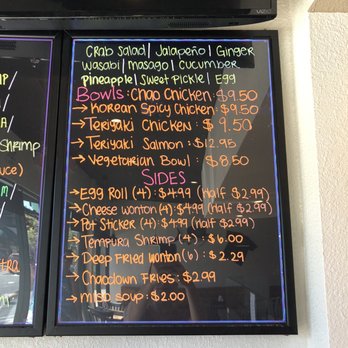 VIZIO
Crab Salad/ Jalapeño/ Ginger
Wasabi/ Masago/ Cucumber
Pineapple/ Sweet Pickle/ Egg
Bowls: Chao Chicken: $9.50
→ Korean Spicy Chicken: $9.50
→ Teriyaki Chicken: $9.50
→ Teriyaki Salmon: $12.95
→ Vegetarian Bowl: $8.50
SIDES
→ Egg Roll (4): $4.99 (Half $2.99)
→ Cheese Wonton (4): $4.99 (Half $2.99)
→ Pot Sticker (4): $4.99 (Half $2.99)
→ Tempura Shrimp (4): $6.00
→ Deep Fried Wonton (6): $2.29
→ Chaodown Fries: $2.99
→ Miso Soup: $2.00
Shrimp